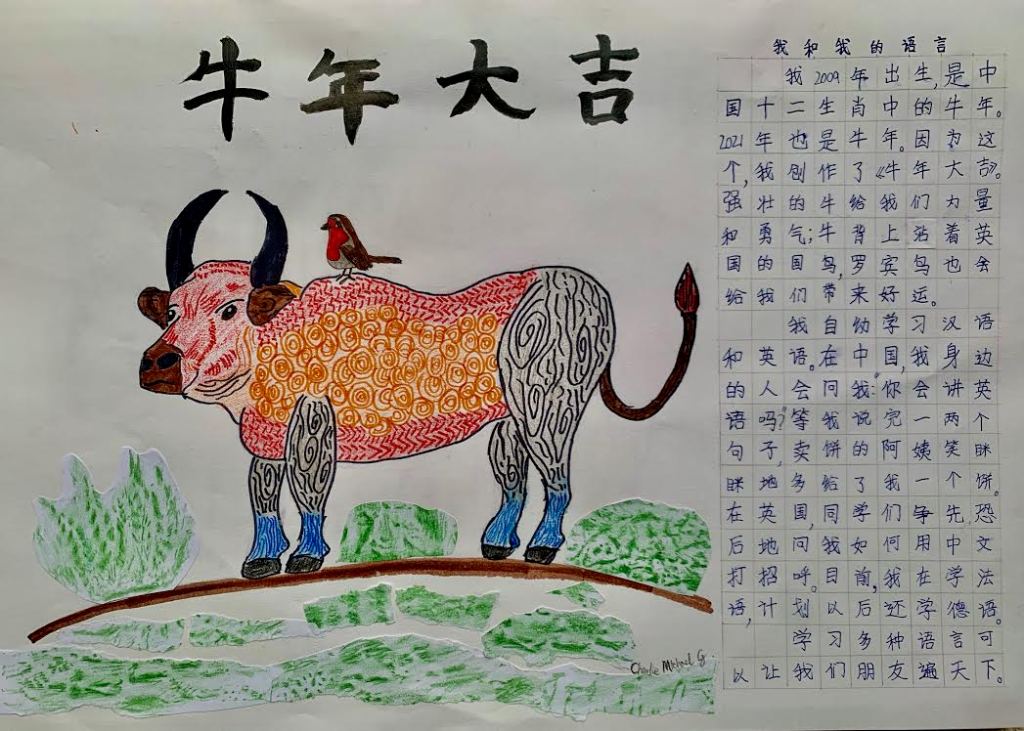 牛年大吉
我和我的语言
我2009年出生,是中
国十二生肖中的牛年。
2021年也是牛年。因为这
个,我创作了《牛年大吉》。
强壮的牛给我们力量
和勇气;牛背上站着英
国的国鸟,罗宾鸟也会
给我们带来好运。
我自幼学习汉语
和英语。在中国,我身边
的人会问我:“你会讲英
语吗?”等我说完一两个
句子,卖饼的阿姨笑眯
眯地多给了我一个饼。
在英国,同学们争先恐
后地问我如何用中文
打招呼。目前,我在学法
语,计划以后还学德语。
学习多种语言可
以让我们朋友遍天下。
Charlie Michael G